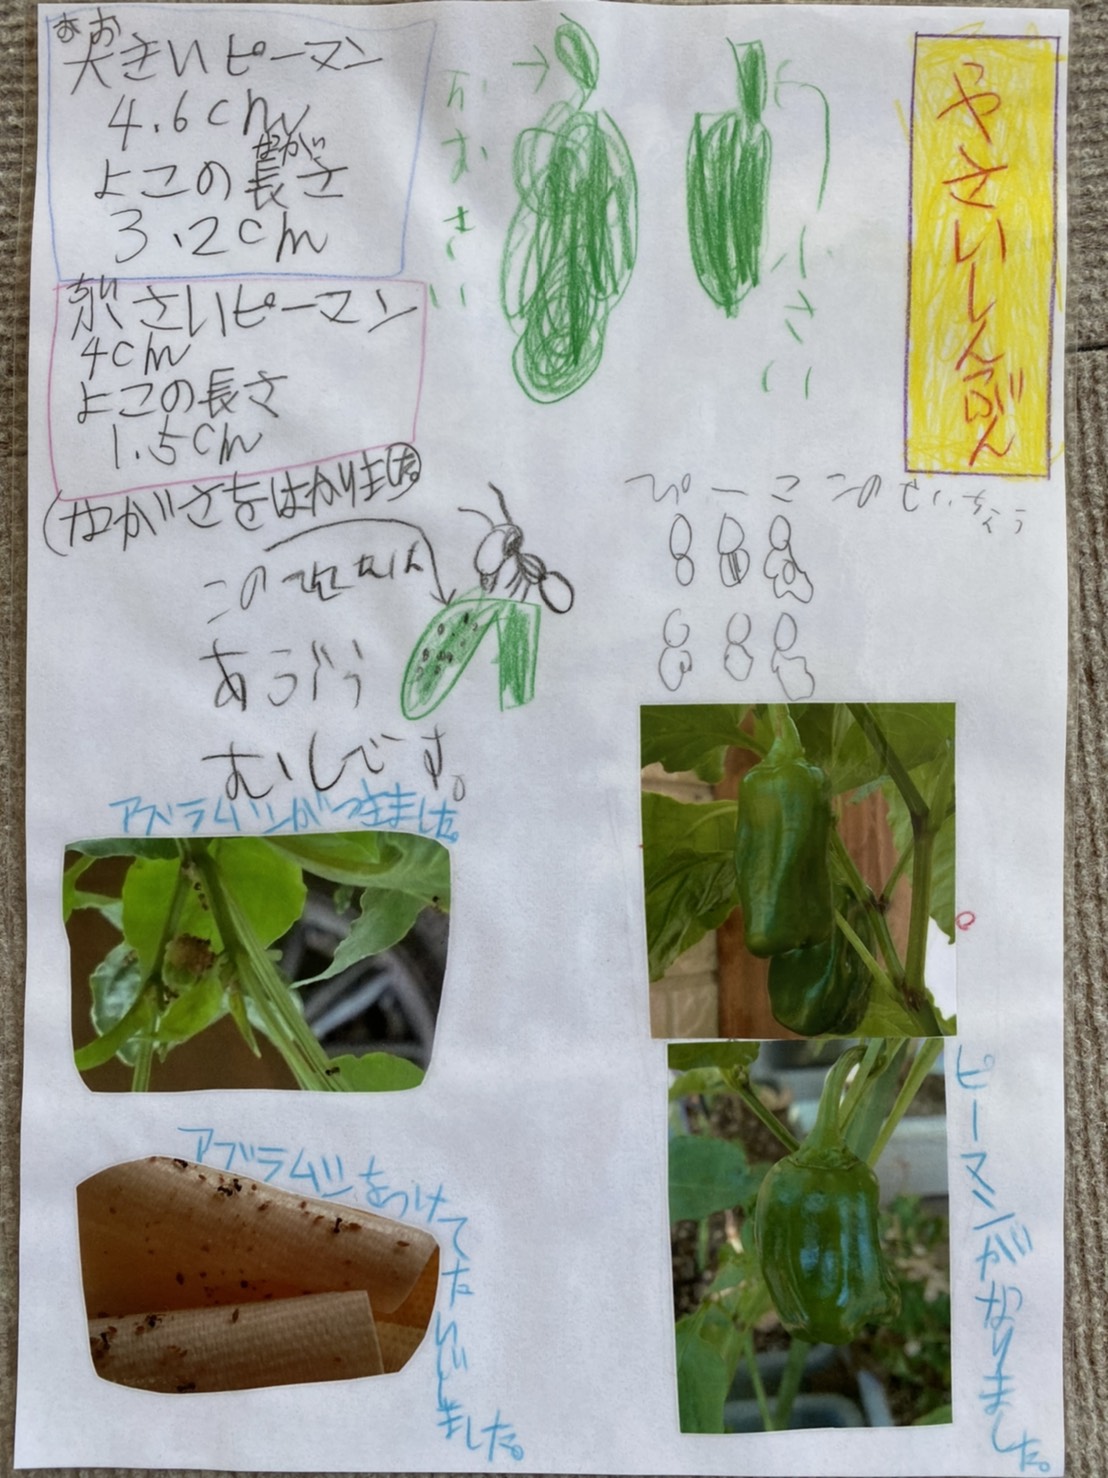 やさいしんぶん
大きいピーマン
おお
4.6cm
よこの長さ
なが
3.2cm
小さいピーマン
ちい
4cm
よこの長さ
1.5cm
(ながさをはかりました。
おおきい
小さい
ぴーこ このせいちょう
この
あぶら
むしです。
アブラムシがつきました。
アブラムシをつけてたいじしました。
ピーマンがなりました。